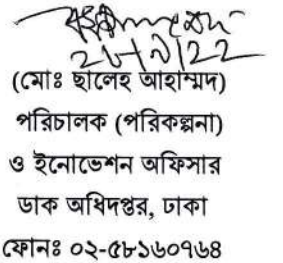 (মোঃ ছালেহ আহাম্মদ)
পরিচালক (পরিকল্পনা)
ও ইনোভেশন অফিসার
ডাক অধিদপ্তর, ঢাকা
ফোনঃ ০২-৫৮১৬০৭৬৪